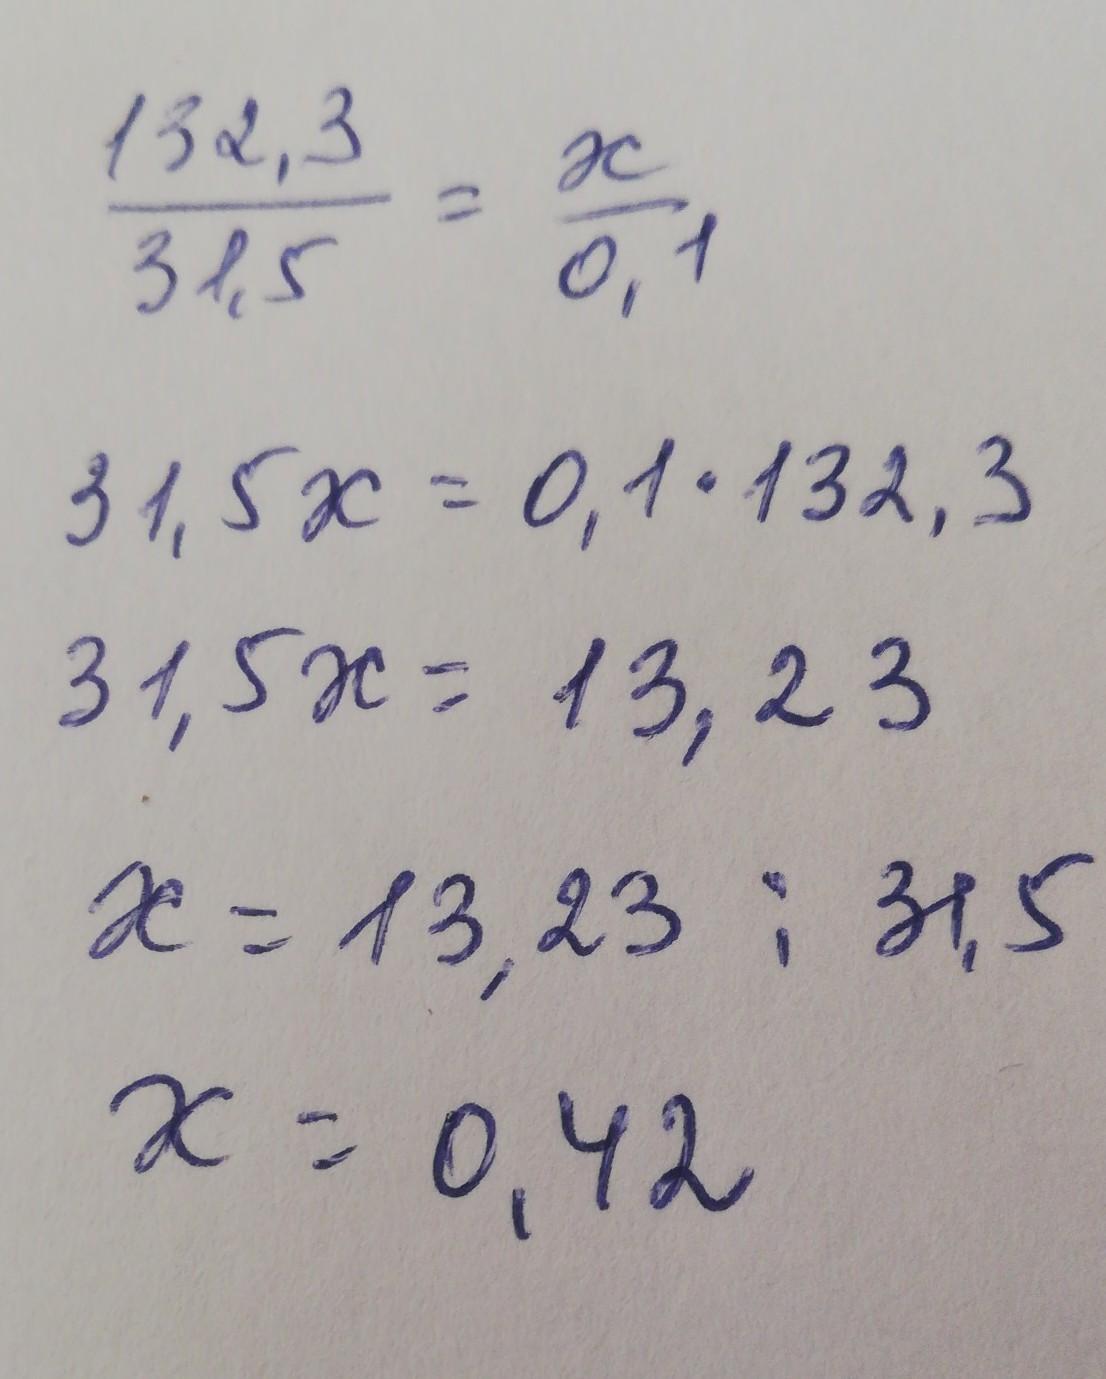 132,3/31,5 = x/0,1
31,5x = 0,1·132,3
31,5x = 13,23
x = 13,23 : 31,5
x = 0,42